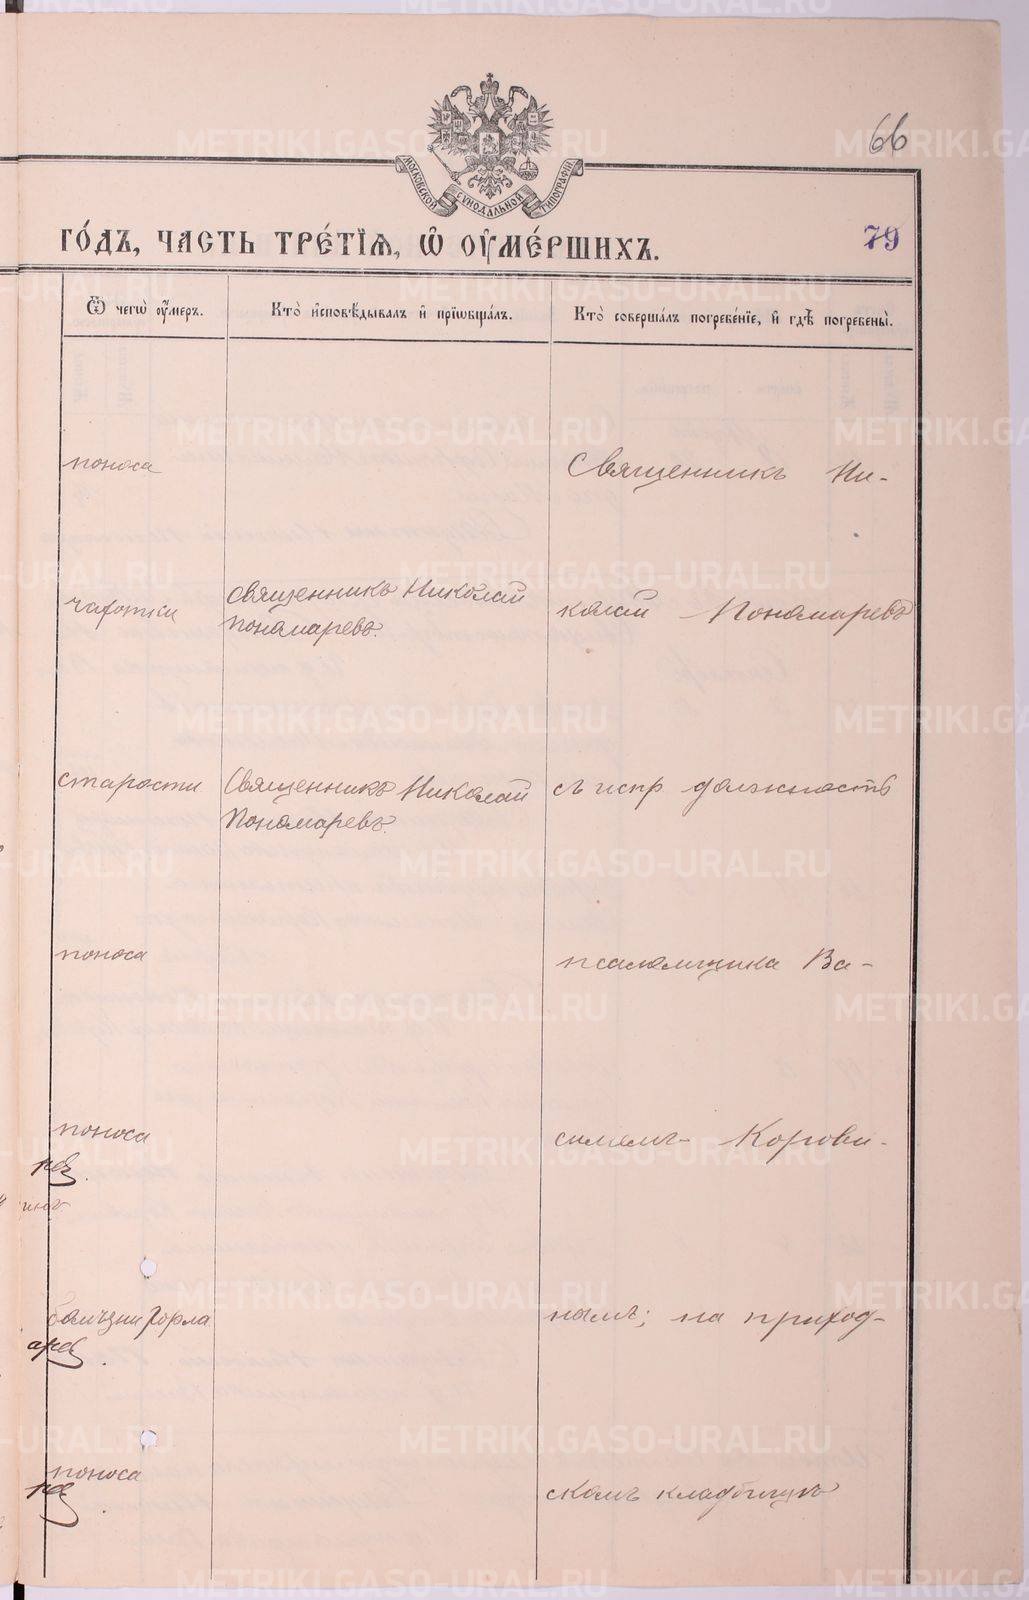 66
МОСКОВСКОЙ СѴНОДАЛЬНОЙ ТИПОГРАФІИ
79
ГО́ДЪ, ЧАСТЬ ТРЕ́ТІѦ, Ѿ ОУ҆МЕ́РШИХЪ.
Ѿ чегѡ̀ оу҆́меръ.
Кто̀ и҆сповѣ́дывалъ и҆ прїѡбща́лъ.
Кто̀ соверша́лъ погребе́нїе, и҆ гдѣ̀ погребены̀.
поноса
Священникъ Ни-
чахотки
священникъ Николай
Пономаревъ.
колай Пономаревъ
старости
Священникъ Николай
Пономаревъ.
съ испр должность
поноса
псаломщика Ва-
поноса
силіемъ Корови-
болѣзни горла
нымъ; на приход-
поноса
скомъ кладбищѣ
METRIKI.GASO-URAL.RU